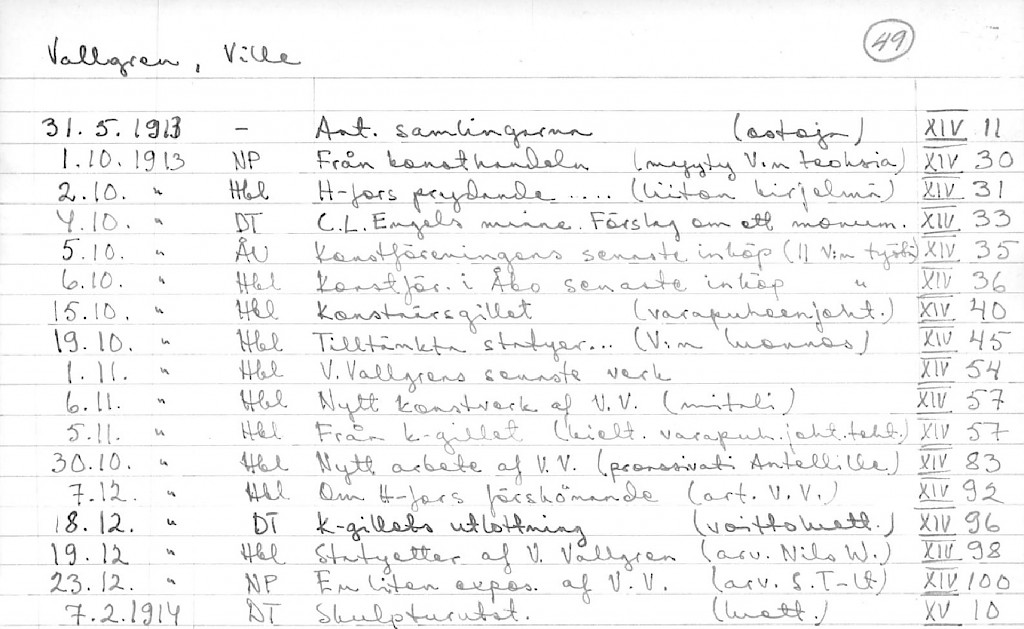 49
Vallgren, Ville
31.5.1913 - Ant. samlingarna (ostoja) XIV 11
1.10.1913 NP Från konsthandeln (myyty V:n teoksia) XIV 30
2.10. " Hbl H-fors prydande .... (liiton kirjelmä) XIV 31
4.10. " DT C.L. Engels minne. Förslag om ett monum. XIV 33
5.10. " ÅU Konstföreningens senaste inköp (11 V:n työtä) XIV 35
6.10. " Hbl Konstför. i Åbo senaste inköp " XIV 36
15.10. " Hbl Konstnärsgillet (varapuheenjoht.) XIV 40
19.10. " Hbl Tilltänkta statyer... (V:n luonnos) XIV 45
1.11. " Hbl V. Vallgrens senaste verk XIV 54
6.11. " Hbl Nytt konstverk af V.V. (mitali) XIV 57
5.11. " Hbl Från k-gillet (kielt. varapuh.joht.teht.) XIV 57
30.10. " Hbl Nytt arbete af V.V. (pronssivati Antellille) XIV 83
7.12. " Hbl Om H-fors förskönande (art. V.V.) XIV 92
18.12. " DT K-gillets utlottning (voittoluett.) XIV 96
19.12 " Hbl Statyetter af V. Vallgren (arv. Nils W.) XIV 98
23.12. " NP En liten expos. af V.V. (arv. S.T-lt) XIV 100
7.2.1914 DT Skulpturutst. (luett.) XV 10